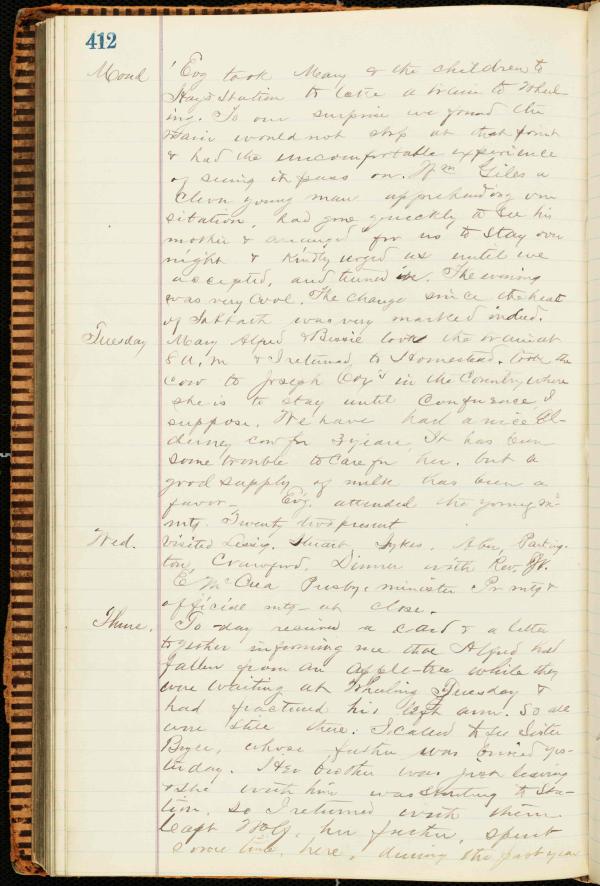 412
Mond Evg took Mary & the children to
Hays Station to take a train to Wheel
ing. To our surprise we found the
train would not stop at that point
& had the uncomfortable experience
of seeing it pass on. Wm Giles a
clever young man apprehending our
sitation, had gone quickly to see his
mother & arranged for us to stay over
night & kindly urged us until we
accepted, and turned in. The evening
was very cool. The change since the heat
of Sabbath was very marked indeed.
Tuesday Mary Alfred & Bessie took the train at
8 A.M & I returned to Homestead. took the
cow to Joseph Cox's in the Country, where
she is to stay until Conference I
suppose. We have had a nice Al-
derney cow for 3 years. It has been
some trouble to care for her. but a
good supply of milk has been a
favor - Evg. attended the young
mtg. Twenty two present
Wed. Visited Stuart Sykes. Parting-
ton, Crawford. Dinner with Rev.
E McCrea Presby. minister Pr mtg &
official mtg - at close.
Thurs. To-day received a card & a letter
together informing me that Alfred had
fallen from an apple-tree while they
were waiting at Wheeling Tuesday &
had fractured his left arm. So all
were still there. I called to see Sister
Bryce, whose father was buried yes-
terday. Her brother was just leaving
& she with him was starting to sta-
tion, so I returned with them
Capt Wolf, her father, spent
some time, here, during the past year